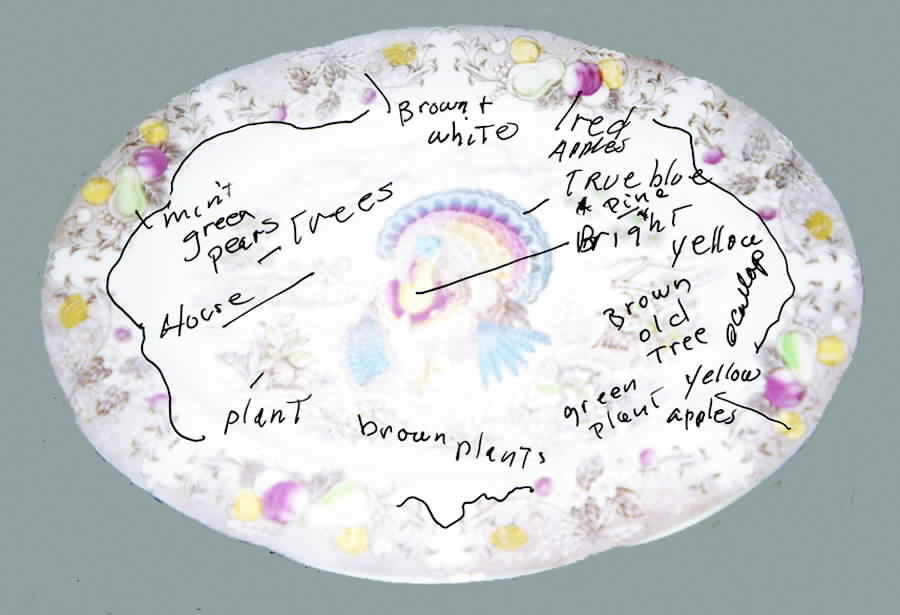 Brown +
white
red
Apples
True blue
& pine
Bright
yellow
scallop
mint
green
pears
Trees
House
Brown
old
Tree
plant
green
plant
yellow
apples
brown plants